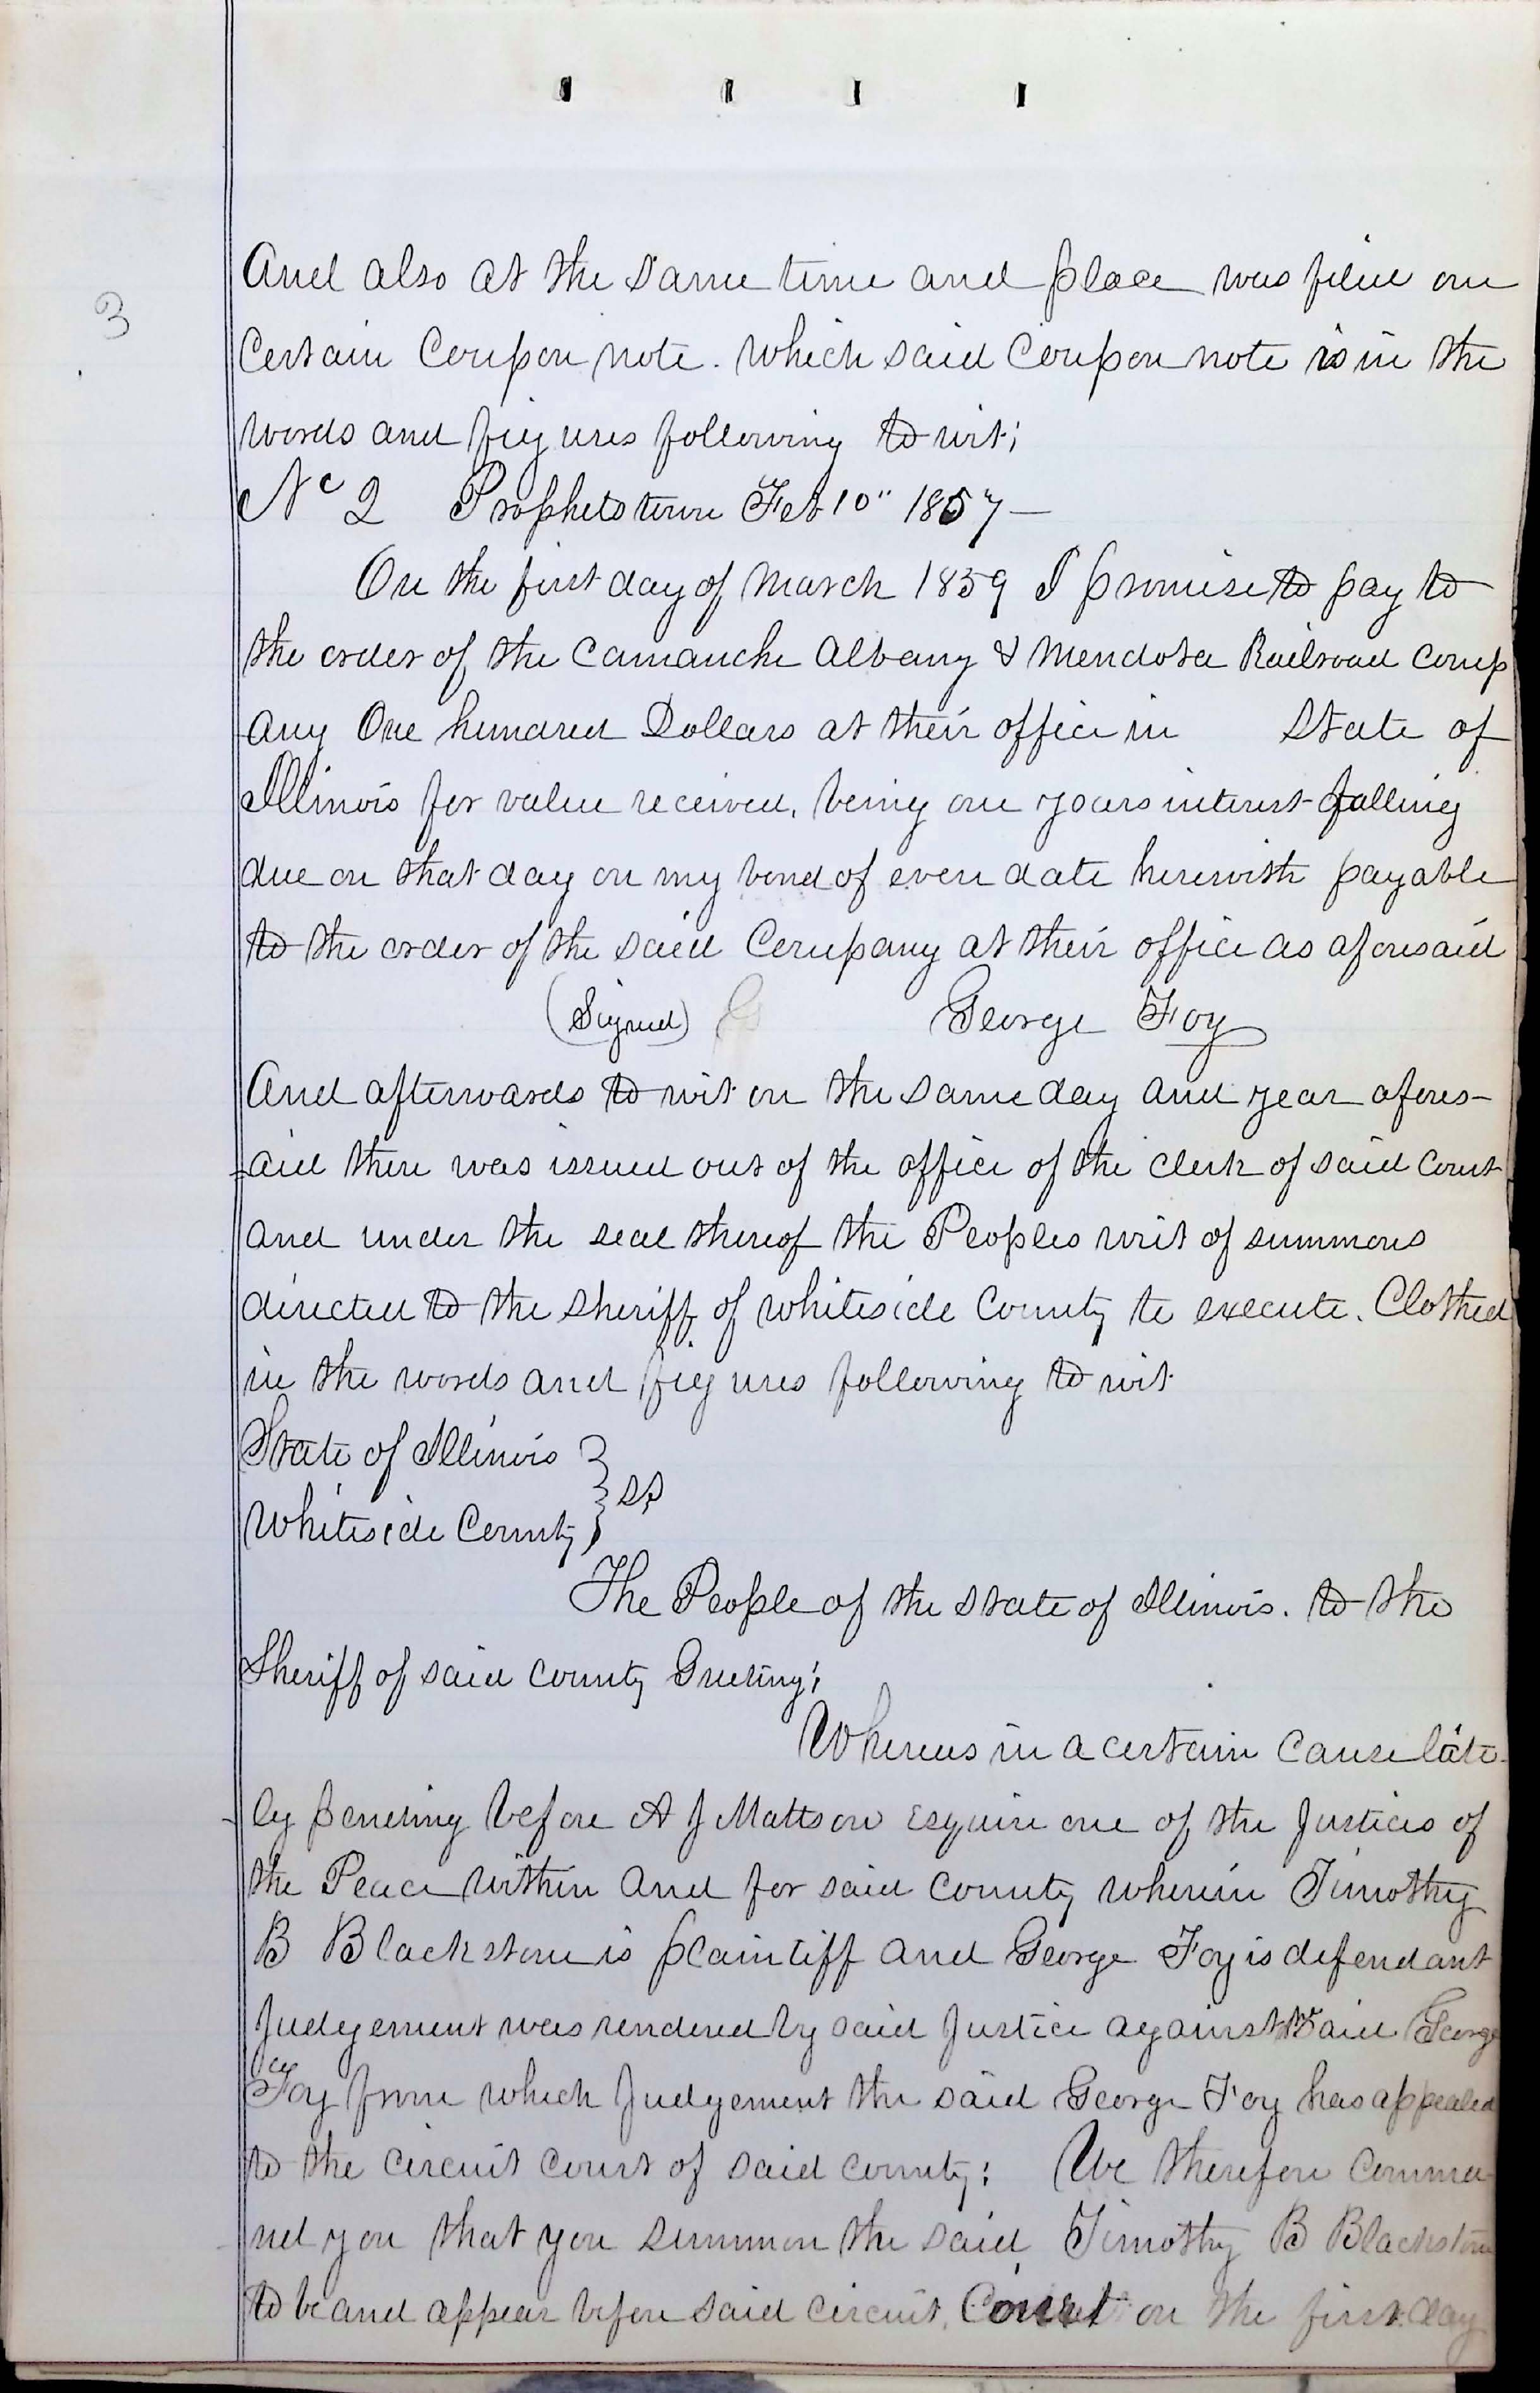 3
And also at the same time and place was filed one
Certain Coupon note. Which said Coupon note is in the
words and figures following to wit;
No 2 Prophetstown Feb 10" 1857—
On the first day of March 1859 I promise to pay to
the order of the Camanche Albany & Mendota Railroad Comp
any One hundred Dollars at their office in State of
Illinois for value received, being one years interest falling
due on that day on my bond of even date herewith payable
to the order of the said Company at their office as aforesaid
(Signed) George Foy
And afterwards to wit on the same day and year afores-
aid there was issued out of the office of the clerk of said Court
and under the seal thereof the Peoples writ of summons
directed to the Sheriff of Whiteside County to execute. Clothed
in the words and figures following to wit
State of Illinois }
Whiteside County } ss
The People of the State of Illinois. to the
Sheriff of said County Greeting;
Whereas in a certain Cause late-
ly pending before A J Mattson Esquire one of the Justices of
the Peace within and for said County wherein Timothy
B Blackstone is plaintiff and George Foy is defendant
Judgement was rendered by said Justice against said George
Foy from which Judgement the said George Foy has appealed
to the Circuit Court of said County; We therefore Comma-
nd you that you summon the said Timothy B Blackstone
to be and appear before said Circuit Court on the first day